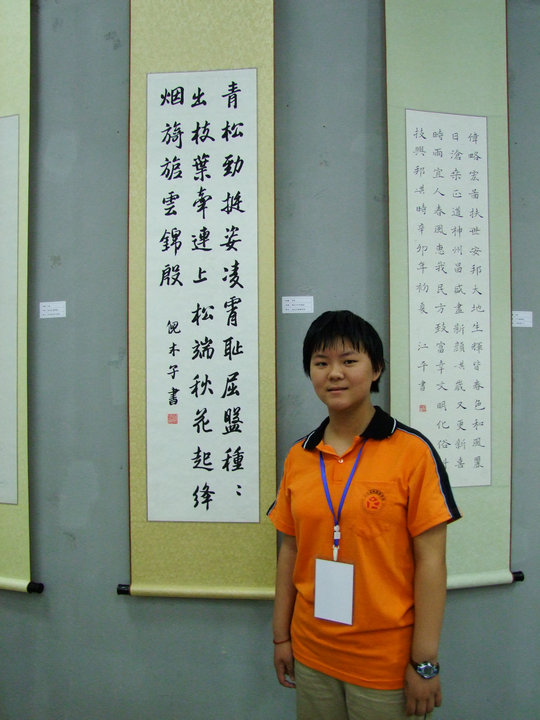 青松勁挺姿凌霄恥屈盤種〻
出枝葉牽連上松端秋花起絳
烟旖旎雲錦殷
倪木子書
偉略宏圖扶世安邦大地生輝皆春色和風麗
日滄桑正道神州昌盛盡新顏歲又更新喜
時雨宜人春風惠我民方致富幸文明化俗
技興邦時辛卯年初夏 江平書